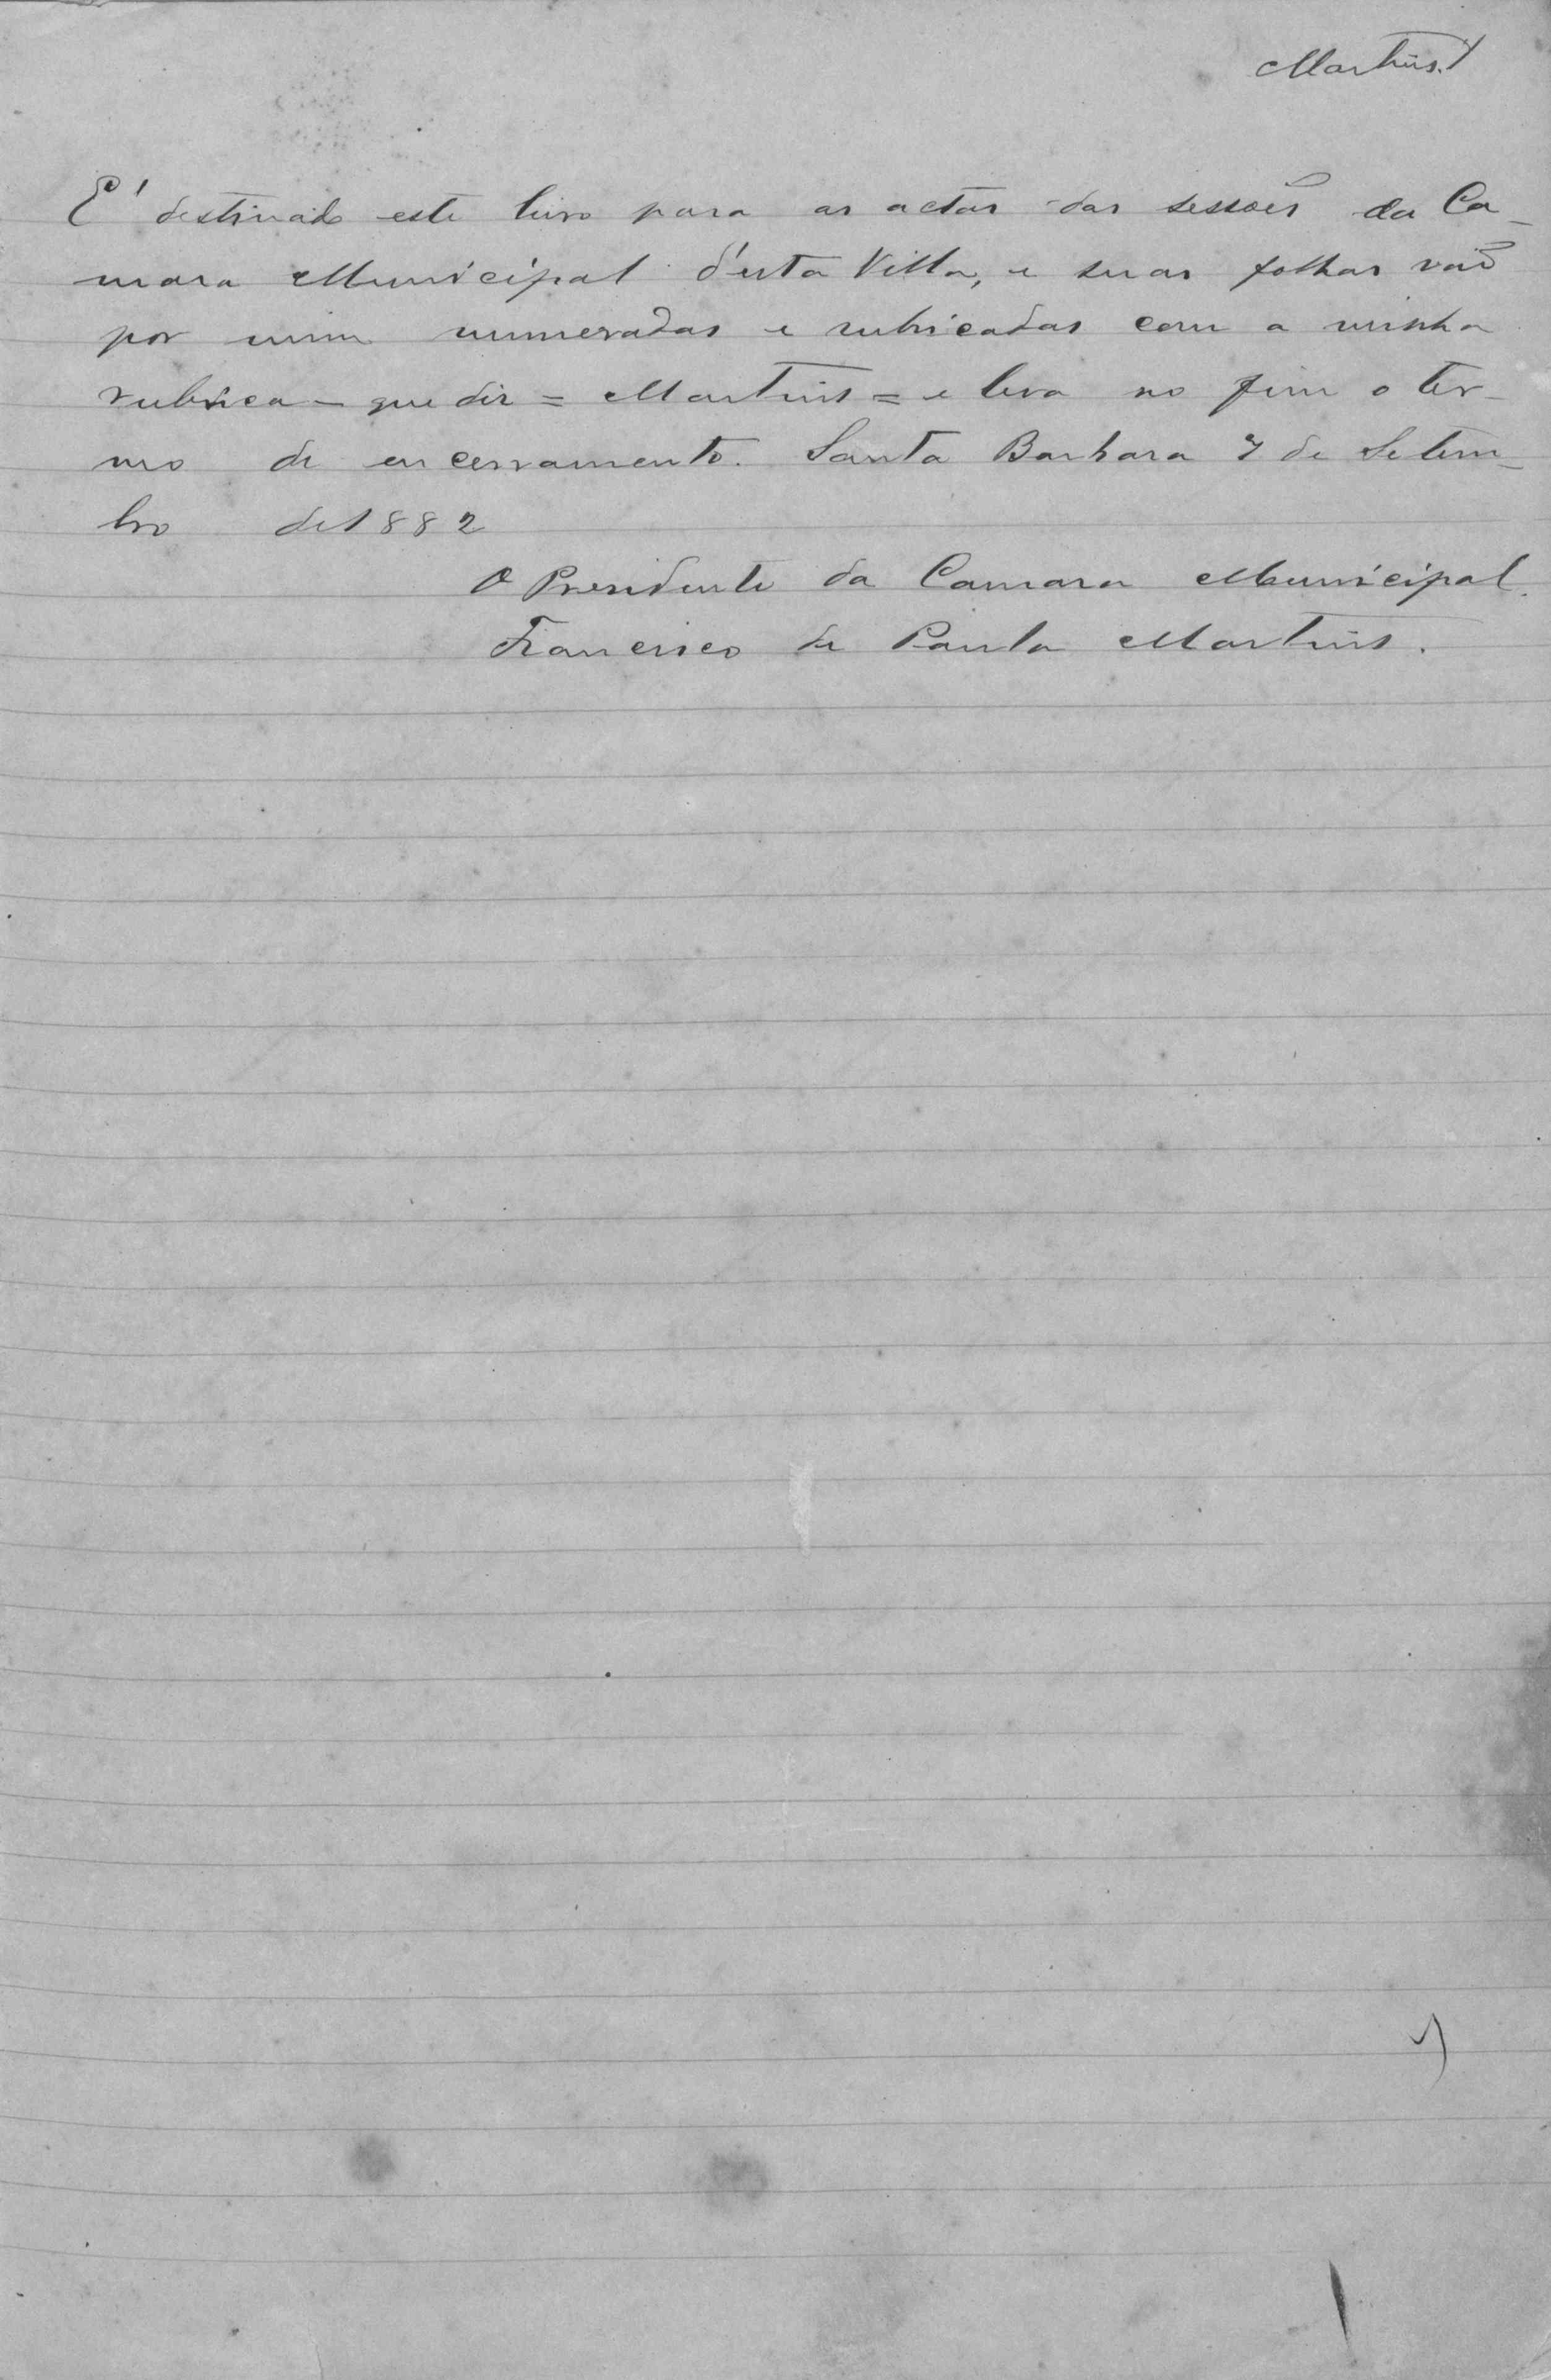 Martins.
E' destinado este livro para as actas das sessões da Ca-
mara Municipal d'esta Villa, e suas folhas vão
por mim numeradas e rubricadas com a minha
rubrica - que diz = Martins = e leva no fim o ter-
mo de encerramento. Santa Barbara 7 de Setem-
bro de 1882
O Presidente da Camara Municipal.
Francisco de Paula Martins.